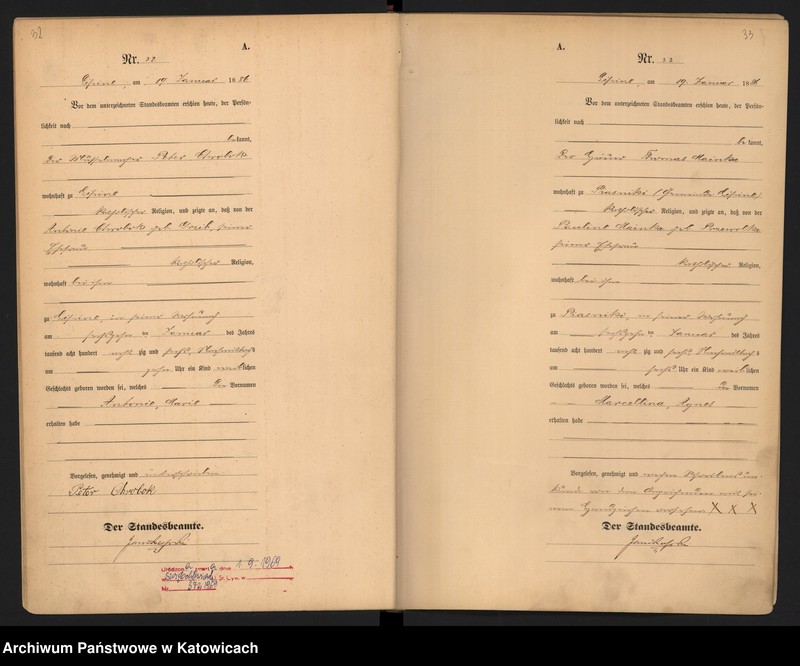 32
A.
Nr. 22
am 19 Januar 1886
Vor dem unterzeichneten Standesbeamten erschien heute, der Persön-
lichkeit nach
bekannt,
Der Peter Chrobok
wohnhaft zu
katholischer Religion, und zeigte an, daß von der
Antonie Chrobok geb. seiner
Ehefrau
katholischer Religion,
wohnhaft bei ihm
zu in seiner Wohnung
am sechszehn ten Januar des Jahres
tausend acht hundert acht zig und sechs, Nachmittags
um zehn Uhr ein Kind weiblichen
Geschlechts geboren worden sei, welches Die Vornamen
Antonie, Marie
erhalten habe
Vorgelesen, genehmigt und unterschrieben
Peter Chrobok
Der Standesbeamte.
1-9-1969
Nr.
33
A.
Nr. 23
am 19. Januar 1886
Vor dem unterzeichneten Standesbeamten erschien heute, der Persön-
lichkeit nach
bekannt,
Der Thomas Mainka
wohnhaft zu
katholischer Religion, und zeigte an, daß von der
Pauline Mainka geb.
seiner Ehefrau
katholischer Religion,
wohnhaft bei ihm
zu in seiner Wohnung
am sechszehn ten Januar des Jahres
tausend acht hundert acht zig und sechs, Nachmittags
um sechs Uhr ein Kind weiblichen
Geschlechts geboren worden sei, welches Die Vornamen
Marcellina, Agnes
erhalten habe
Vorgelesen, genehmigt und wegen Schreibensun-
kunde von dem Anzeigenden mit sei-
nem Handzeichen versehen X X X
Der Standesbeamte.
Archiwum Państwowe w Katowicach